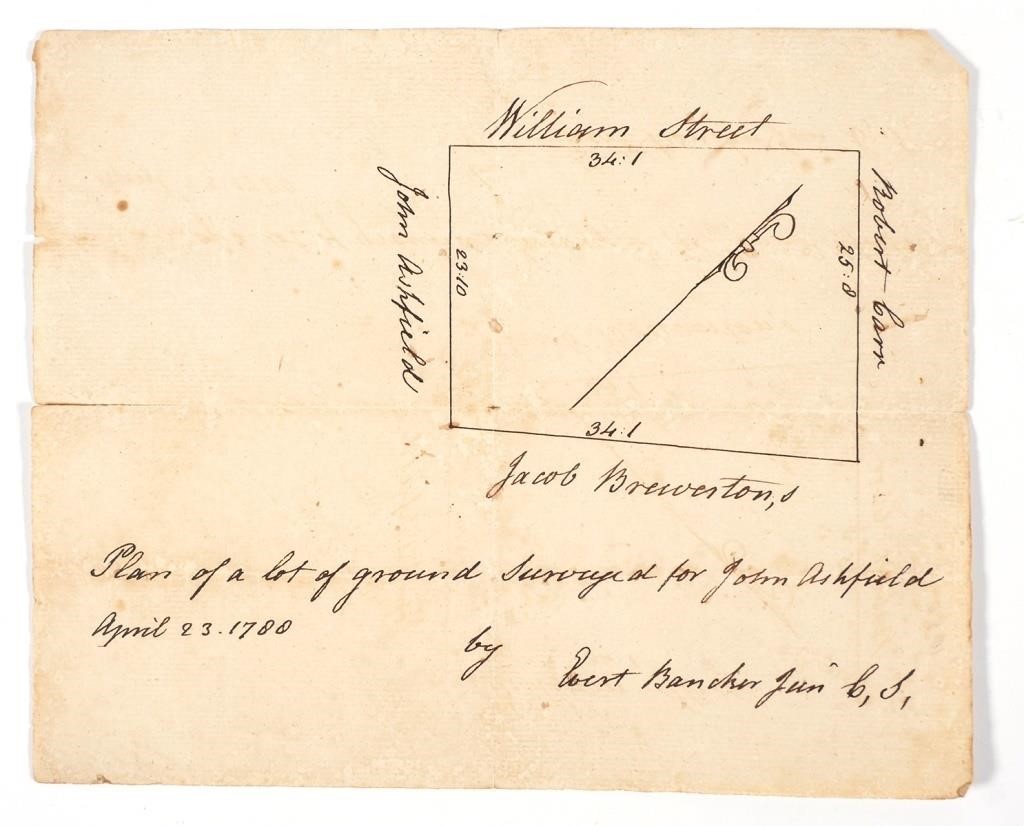 William Street
34:1
John Ashfield
23:10
25:8
Robert Carr
34:1
Jacob Brewerton,s
Plan of a lot of ground Surveyed for John Ashfield
April 23. 1788
by
Evert Bancker Jun C, S,